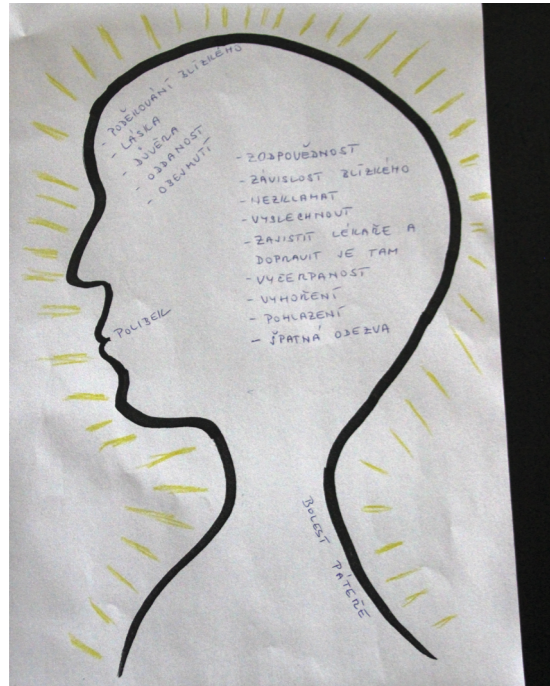 - PODĚKOVÁNÍ BLÍZKÉHO
- LÁSKA
- DŮVĚRA
- ODDANOST
- OBEJMUTÍ
- ZODPOVĚDNOST
- ZÁVISLOST BLÍZKÉHO
- NEZKLAMAT
- VYSLECHNOUT
- ZAJISTIT LÉKAŘE A
DOPRAVIT JE TAM
- VYČERPANOST
- VYHOŘENÍ
- POHLAZENÍ
- ŠPATNÁ ODEZVA
POLIBEK
BOLEST PÁTEŘE